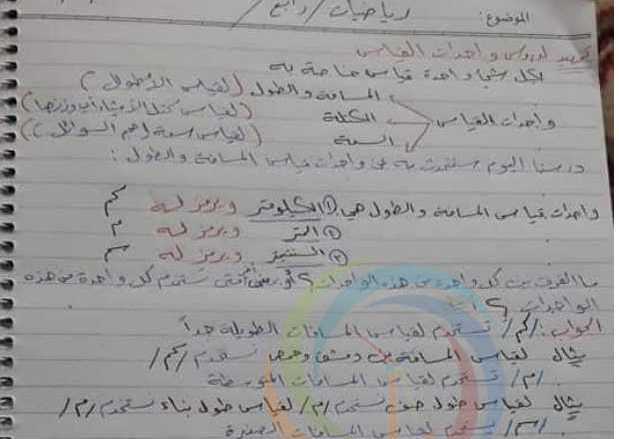 الموضوع: رياضيات / رابع /
تمهيد لدروس واحدات القياس
لكل شيء واحدة قياس خاصة به
المسافة والطول (لقياس الأطوال)
واحدات القياس الكتلة (لقياس كتل الأشياء أي وزنها)
السعة (لقياس سعة أهم السوائل)
درسنا اليوم سنتحدث به عن واحدات قياس المسافة والطول:
واحدات قياس المسافة والطول هي ① الكيلومتر ويرمز له كم
② المتر ويرمز له م
③ السنتيمتر ويرمز له سم
ما الفرق بين كل واحدة من هذه الواحدات؟ أو متى نستخدم كل واحدة من هذه
الواحدات؟
الجواب: /كم/ تستخدم لقياس المسافات الطويلة جداً
مثال لقياس المسافة بين دمشق وحمص نستخدم /كم/
/م/ تستخدم لقياس المسافات المتوسطة
مثال لقياس طول صف نستخدم /م/ لقياس طول بناء نستخدم /م/
/سم/ تستخدم لقياس المسافات الصغيرة